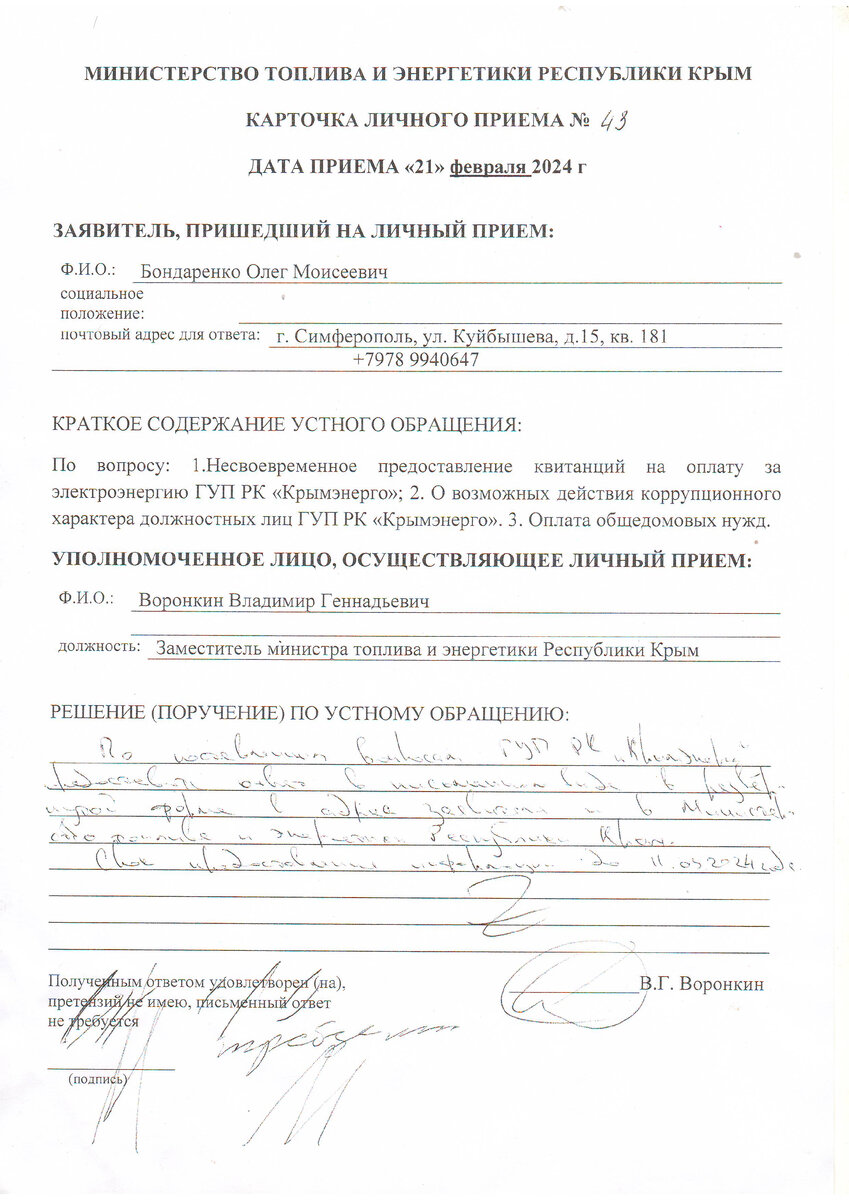 МИНИСТЕРСТВО ТОПЛИВА И ЭНЕРГЕТИКИ РЕСПУБЛИКИ КРЫМ
КАРТОЧКА ЛИЧНОГО ПРИЕМА № 43
ДАТА ПРИЕМА «21» февраля 2024 г
ЗАЯВИТЕЛЬ, ПРИШЕДШИЙ НА ЛИЧНЫЙ ПРИЕМ:
Ф.И.О.: Бондаренко Олег Моисеевич
социальное
положение:
почтовый адрес для ответа: г. Симферополь, ул. Куйбышева, д.15, кв. 181
+7978 9940647
КРАТКОЕ СОДЕРЖАНИЕ УСТНОГО ОБРАЩЕНИЯ:
По вопросу: 1.Несвоевременное предоставление квитанций на оплату за
электроэнергию ГУП РК «Крымэнерго»; 2. О возможных действия коррупционного
характера должностных лиц ГУП РК «Крымэнерго». 3. Оплата общедомовых нужд.
УПОЛНОМОЧЕННОЕ ЛИЦО, ОСУЩЕСТВЛЯЮЩЕЕ ЛИЧНЫЙ ПРИЕМ:
Ф.И.О.: Воронкин Владимир Геннадьевич
должность: Заместитель министра топлива и энергетики Республики Крым
РЕШЕНИЕ (ПОРУЧЕНИЕ) ПО УСТНОМУ ОБРАЩЕНИЮ:
По поставленным вопросам ГУП РК «Крымэнерго»
предоставить ответ в письменном виде в развёр-
нутой форме в адрес заявителя и в Министер-
ство топлива и энергетики Республики Крым.
Срок предоставления информации до 11.03.2024 года.
Полученным ответом удовлетворен (на),
претензий не имею, письменный ответ
не требуется
В.Г. Воронкин
(подпись)